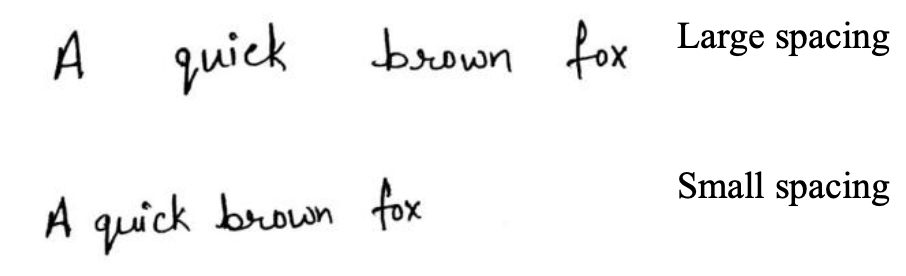 A quick brown fox Large spacing
A quick brown fox Small spacing